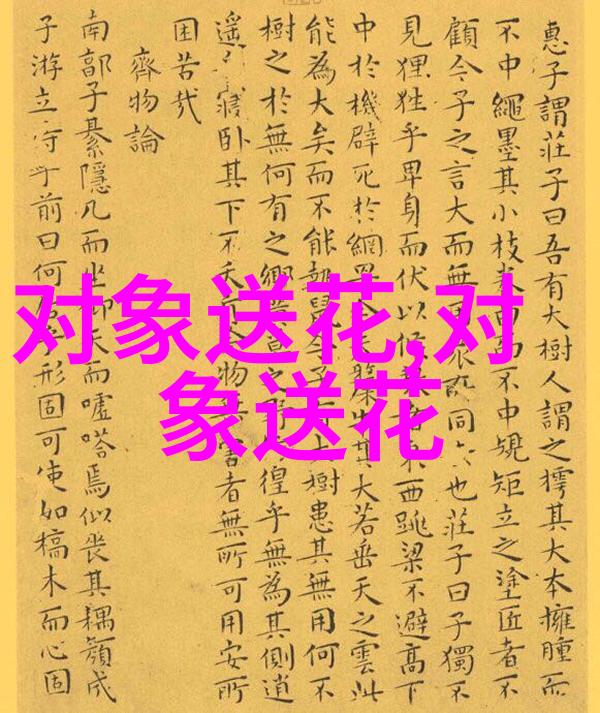 惠子謂莊子曰吾有大樹人謂之樗其大本擁腫而
不中繩墨其小枝卷而不中規矩立之塗匠者不
顧今子之言大而無同也莊子曰子獨不
見狸狌乎卑身而伏以候東西跳梁不避高下
中於機辟死於網其大若垂天之雲此
能為大矣而不能執鼠今子大樹患其無用何不
樹之於無何有之鄉之徨乎無為其側逍
遙寢臥其下不夭物害者無所可用安所
困苦哉
齊物論
南郭子綦隱几而坐仰天而噓嗒焉似喪其耦顏成
子游立侍乎前曰何乎形固可使如槁木而心固
对象送花,对
象送花